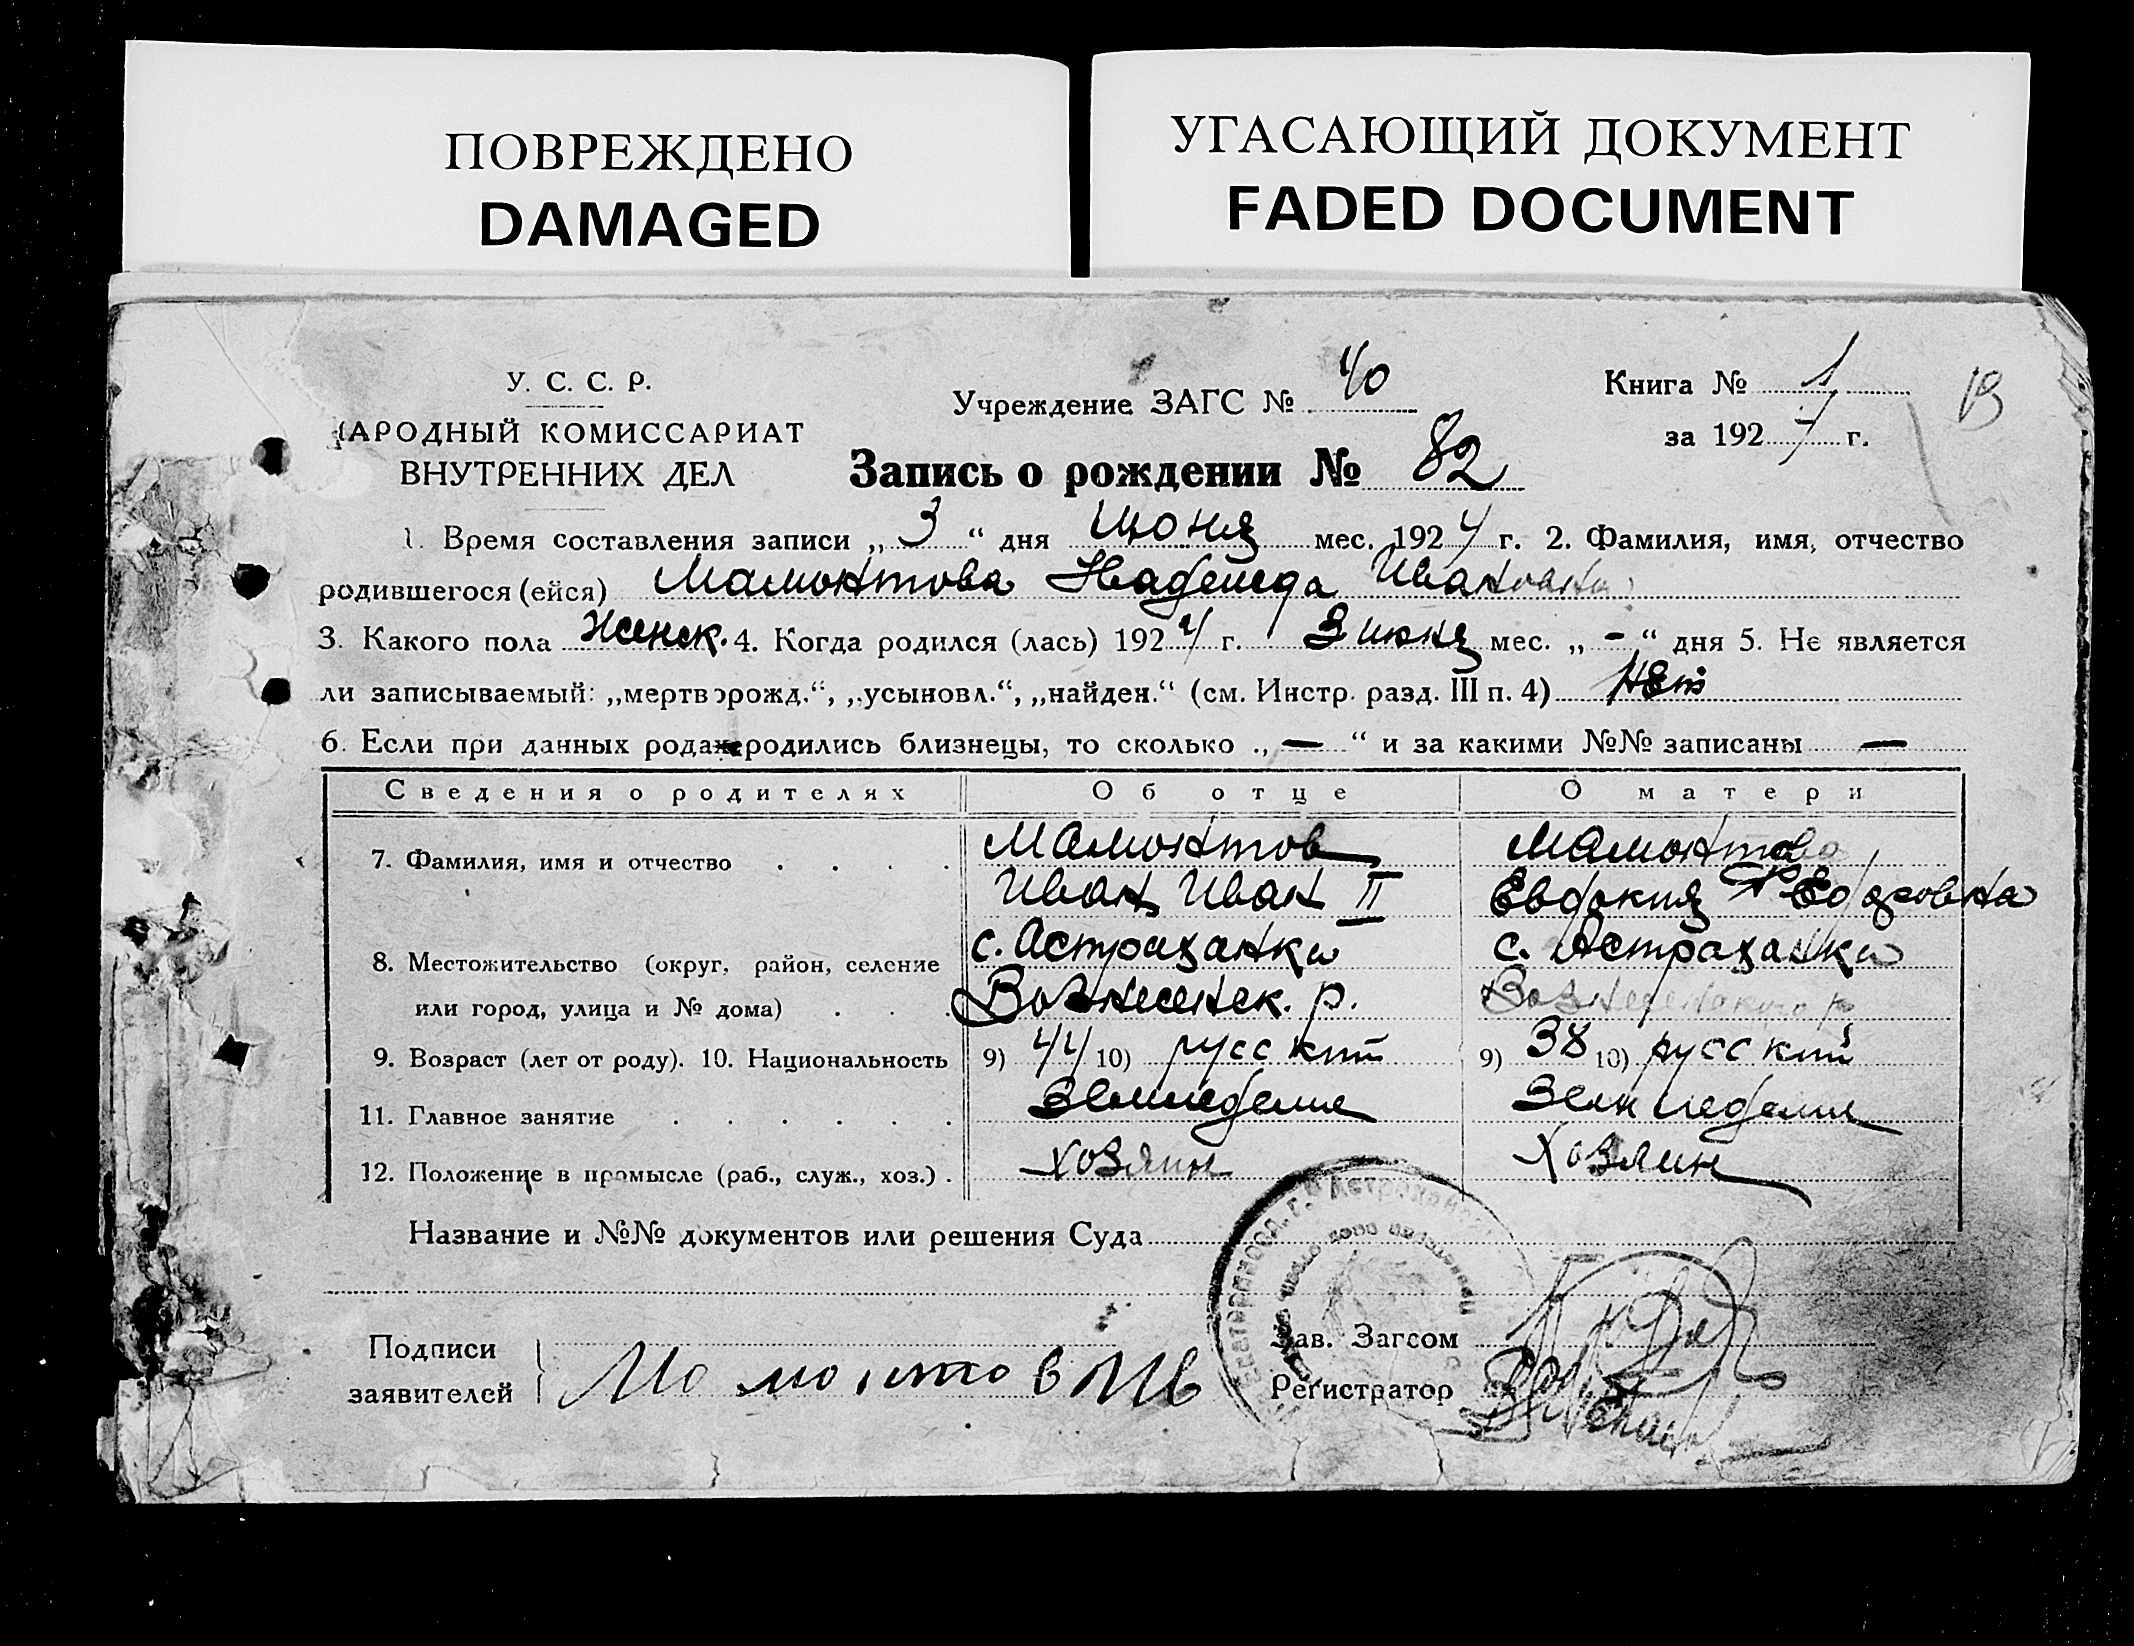 ПОВРЕЖДЕНО
DAMAGED
УГАСАЮЩИЙ ДОКУМЕНТ
FADED DOCUMENT
У. С. С. Р.
АРОДНЫЙ КОМИССАРИАТ
ВНУТРЕННИХ ДЕЛ
Учреждение ЗАГС № 40
Книга № 1
за 192 7 г.
Запись о рождении № 82
1. Время составления записи „ 3 “ дня Июня мес. 192 4 г. 2. Фамилия, имя, отчество
родившегося (ейся) Мамонтова Надежда Ивановна
3. Какого пола женск. 4. Когда родился (лась) 192 4 г. 3 июня мес. „ - “ дня 5. Не является
ли записываемый: „мертворожд.“, „усыновл.“, „найден.“ (см. Инстр. разд. III п. 4) нет
6. Если при данных родах родились близнецы, то сколько „ — “ и за какими №№ записаны —
Сведения о родителях Об отце О матери
7. Фамилия, имя и отчество Мамонтов Мамонтова
Иван Иван II Евдокия
8. Местожительство (округ, район, селение с. Астраханка с. Астраханка
или город, улица и № дома) Вознесенск. р. Вознесенского р
9. Возраст (лет от роду). 10. Национальность 9) 44 10) русский 9) 38 10) русский
11. Главное занятие Земледелие Земледелие
12. Положение в промысле (раб., служ., хоз.) хозяин хозяин
Название и №№ документов или решения Суда
Подписи
заявителей Мамонтов Ив
Зав. Загсом
Регистратор